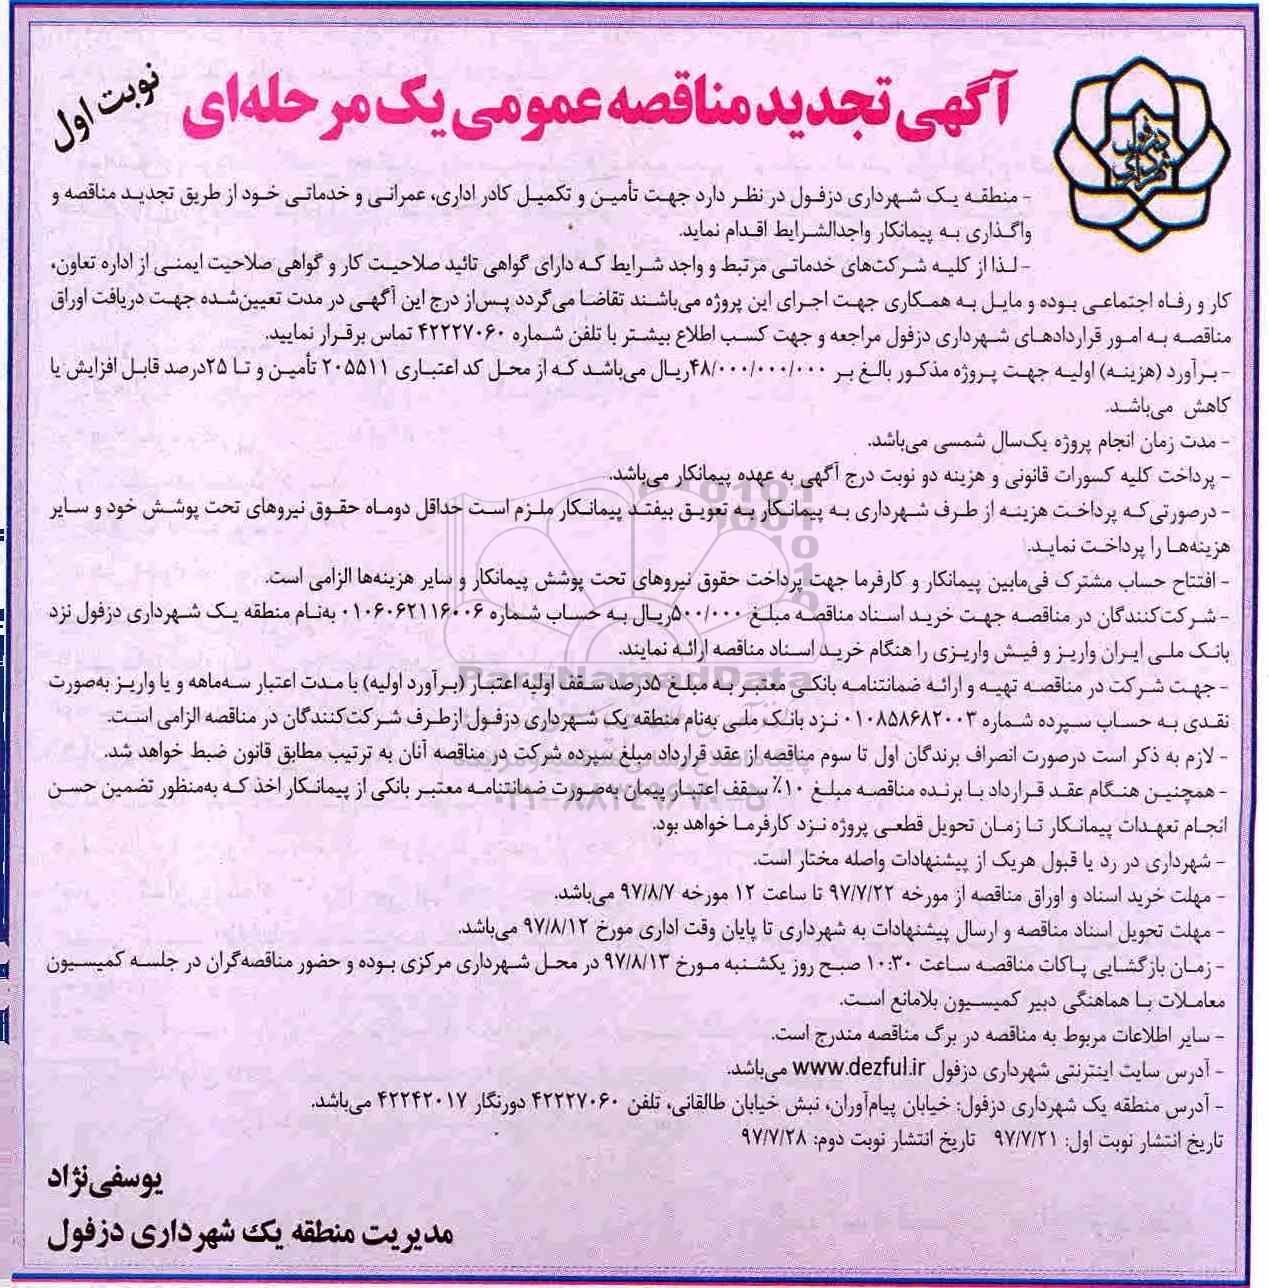 آگهی تجدید مناقصه عمومی یک مرحله‌ای
نوبت اول
شهرداری دزفول
- منطقه یک شهرداری دزفول در نظر دارد جهت تأمین و تکمیل کادر اداری، عمرانی و خدماتی خود از طریق تجدید مناقصه و
واگذاری به پیمانکار واجدالشرایط اقدام نماید.
- لذا از کلیه شرکت‌های خدماتی مرتبط و واجد شرایط که دارای گواهی تائید صلاحیت کار و گواهی صلاحیت ایمنی از اداره تعاون،
کار و رفاه اجتماعی بوده و مایل به همکاری جهت اجرای این پروژه می‌باشند تقاضا می‌گردد پس‌از درج این آگهی در مدت تعیین‌شده جهت دریافت اوراق
مناقصه به امور قراردادهای شهرداری دزفول مراجعه و جهت کسب اطلاع بیشتر با تلفن شماره ۴۲۲۲۷۰۶۰ تماس برقرار نمایید.
- برآورد (هزینه) اولیه جهت پروژه مذکور بالغ بر ۴۸/۰۰۰/۰۰۰/۰۰۰ریال می‌باشد که از محل کد اعتباری ۲۰۵۵۱۱ تأمین و تا ۲۵درصد قابل افزایش یا
کاهش می‌باشد.
- مدت زمان انجام پروژه یک‌سال شمسی می‌باشد.
- پرداخت کلیه کسورات قانونی و هزینه دو نوبت درج آگهی به عهده پیمانکار می‌باشد.
- درصورتی‌که پرداخت هزینه از طرف شهرداری به پیمانکار به تعویق بیفتد پیمانکار ملزم است حداقل دوماه حقوق نیروهای تحت پوشش خود و سایر
هزینه‌ها را پرداخت نماید.
- افتتاح حساب مشترک فی‌مابین پیمانکار و کارفرما جهت پرداخت حقوق نیروهای تحت پوشش پیمانکار و سایر هزینه‌ها الزامی است.
- شرکت‌کنندگان در مناقصه جهت خرید اسناد مناقصه مبلغ ۵۰۰/۰۰۰ریال به حساب شماره ۰۱۰۶۰۶۲۱۱۶۰۰۶ به‌نام منطقه یک شهرداری دزفول نزد
بانک ملی ایران واریز و فیش واریزی را هنگام خرید اسناد مناقصه ارائه نمایند.
- جهت شرکت در مناقصه تهیه و ارائه ضمانتنامه بانکی معتبر به مبلغ ۵درصد سقف اولیه اعتبار (برآورد اولیه) با مدت اعتبار سه‌ماهه و یا واریز به‌صورت
نقدی به حساب سپرده شماره ۰۱۰۸۵۸۶۸۲۰۰۳ نزد بانک ملی به‌نام منطقه یک شهرداری دزفول ازطرف شرکت‌کنندگان در مناقصه الزامی است.
- لازم به ذکر است درصورت انصراف برندگان اول تا سوم مناقصه از عقد قرارداد مبلغ سپرده شرکت در مناقصه آنان به ترتیب مطابق قانون ضبط خواهد شد.
- همچنین هنگام عقد قرارداد با برنده مناقصه مبلغ ۱۰٪ سقف اعتبار پیمان به‌صورت ضمانتنامه معتبر بانکی از پیمانکار اخذ که به‌منظور تضمین حسن
انجام تعهدات پیمانکار تا زمان تحویل قطعی پروژه نزد کارفرما خواهد بود.
- شهرداری در رد یا قبول هریک از پیشنهادات واصله مختار است.
- مهلت خرید اسناد و اوراق مناقصه از مورخه ۹۷/۷/۲۲ تا ساعت ۱۲ مورخه ۹۷/۸/۷ می‌باشد.
- مهلت تحویل اسناد مناقصه و ارسال پیشنهادات به شهرداری تا پایان وقت اداری مورخ ۹۷/۸/۱۲ می‌باشد.
- زمان بازگشایی پاکات مناقصه ساعت ۱۰:۳۰ صبح روز یکشنبه مورخ ۹۷/۸/۱۳ در محل شهرداری مرکزی بوده و حضور مناقصه‌گران در جلسه کمیسیون
معاملات با هماهنگی دبیر کمیسیون بلامانع است.
- سایر اطلاعات مربوط به مناقصه در برگ مناقصه مندرج است.
- آدرس سایت اینترنتی شهرداری دزفول www.dezful.ir می‌باشد.
- آدرس منطقه یک شهرداری دزفول: خیابان پیام‌آوران، نبش خیابان طالقانی، تلفن ۴۲۲۲۷۰۶۰ دورنگار ۴۲۲۴۲۰۱۷ می‌باشد.
تاریخ انتشار نوبت اول: ۹۷/۷/۲۱ تاریخ انتشار نوبت دوم: ۹۷/۷/۲۸
یوسفی‌نژاد
مدیریت منطقه یک شهرداری دزفول
ParsNamadData
۰۲۱-۸۸۳۴۹۶۷۰-۵